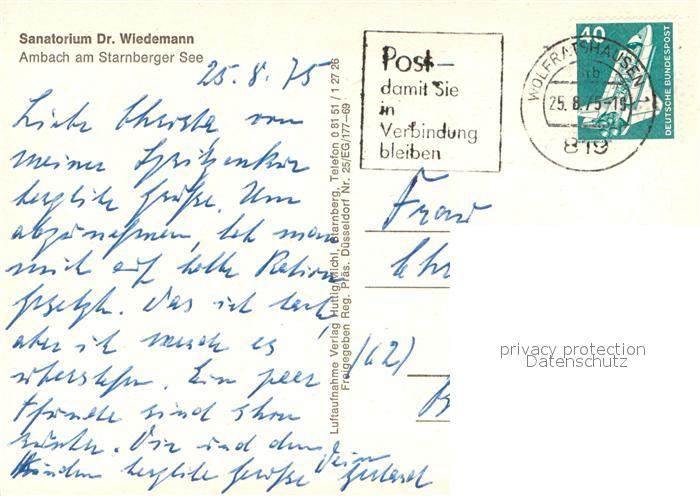 Sanatorium Dr. Wiedemann
Ambach am Starnberger See
25. 8. 75
Liebe Christa von
meiner Spritzenkur
herzliche Grüße. Um
abzunehmen, hat man
mich auf halbe Ration
gesetzt. Das ist hart,
aber ich werde es
überstehen. Ein paar
Pfunde sind schon
runter. Dir und den
Kindern herzliche Grüße Dein
Luftaufnahme Verlag Huttig/Michl, Starnberg, Telefon 0 81 51 / 1 27 26
Freigegeben Reg. Präs. Düsseldorf Nr. 25/EG/177-69
Post-
damit Sie
in
Verbindung
bleiben
WOLFRATSHAUSEN 1
mb
25. 8. 75-19
819
40
DEUTSCHE BUNDESPOST
Frau
Chr
(62)
B
privacy protection
Datenschutz